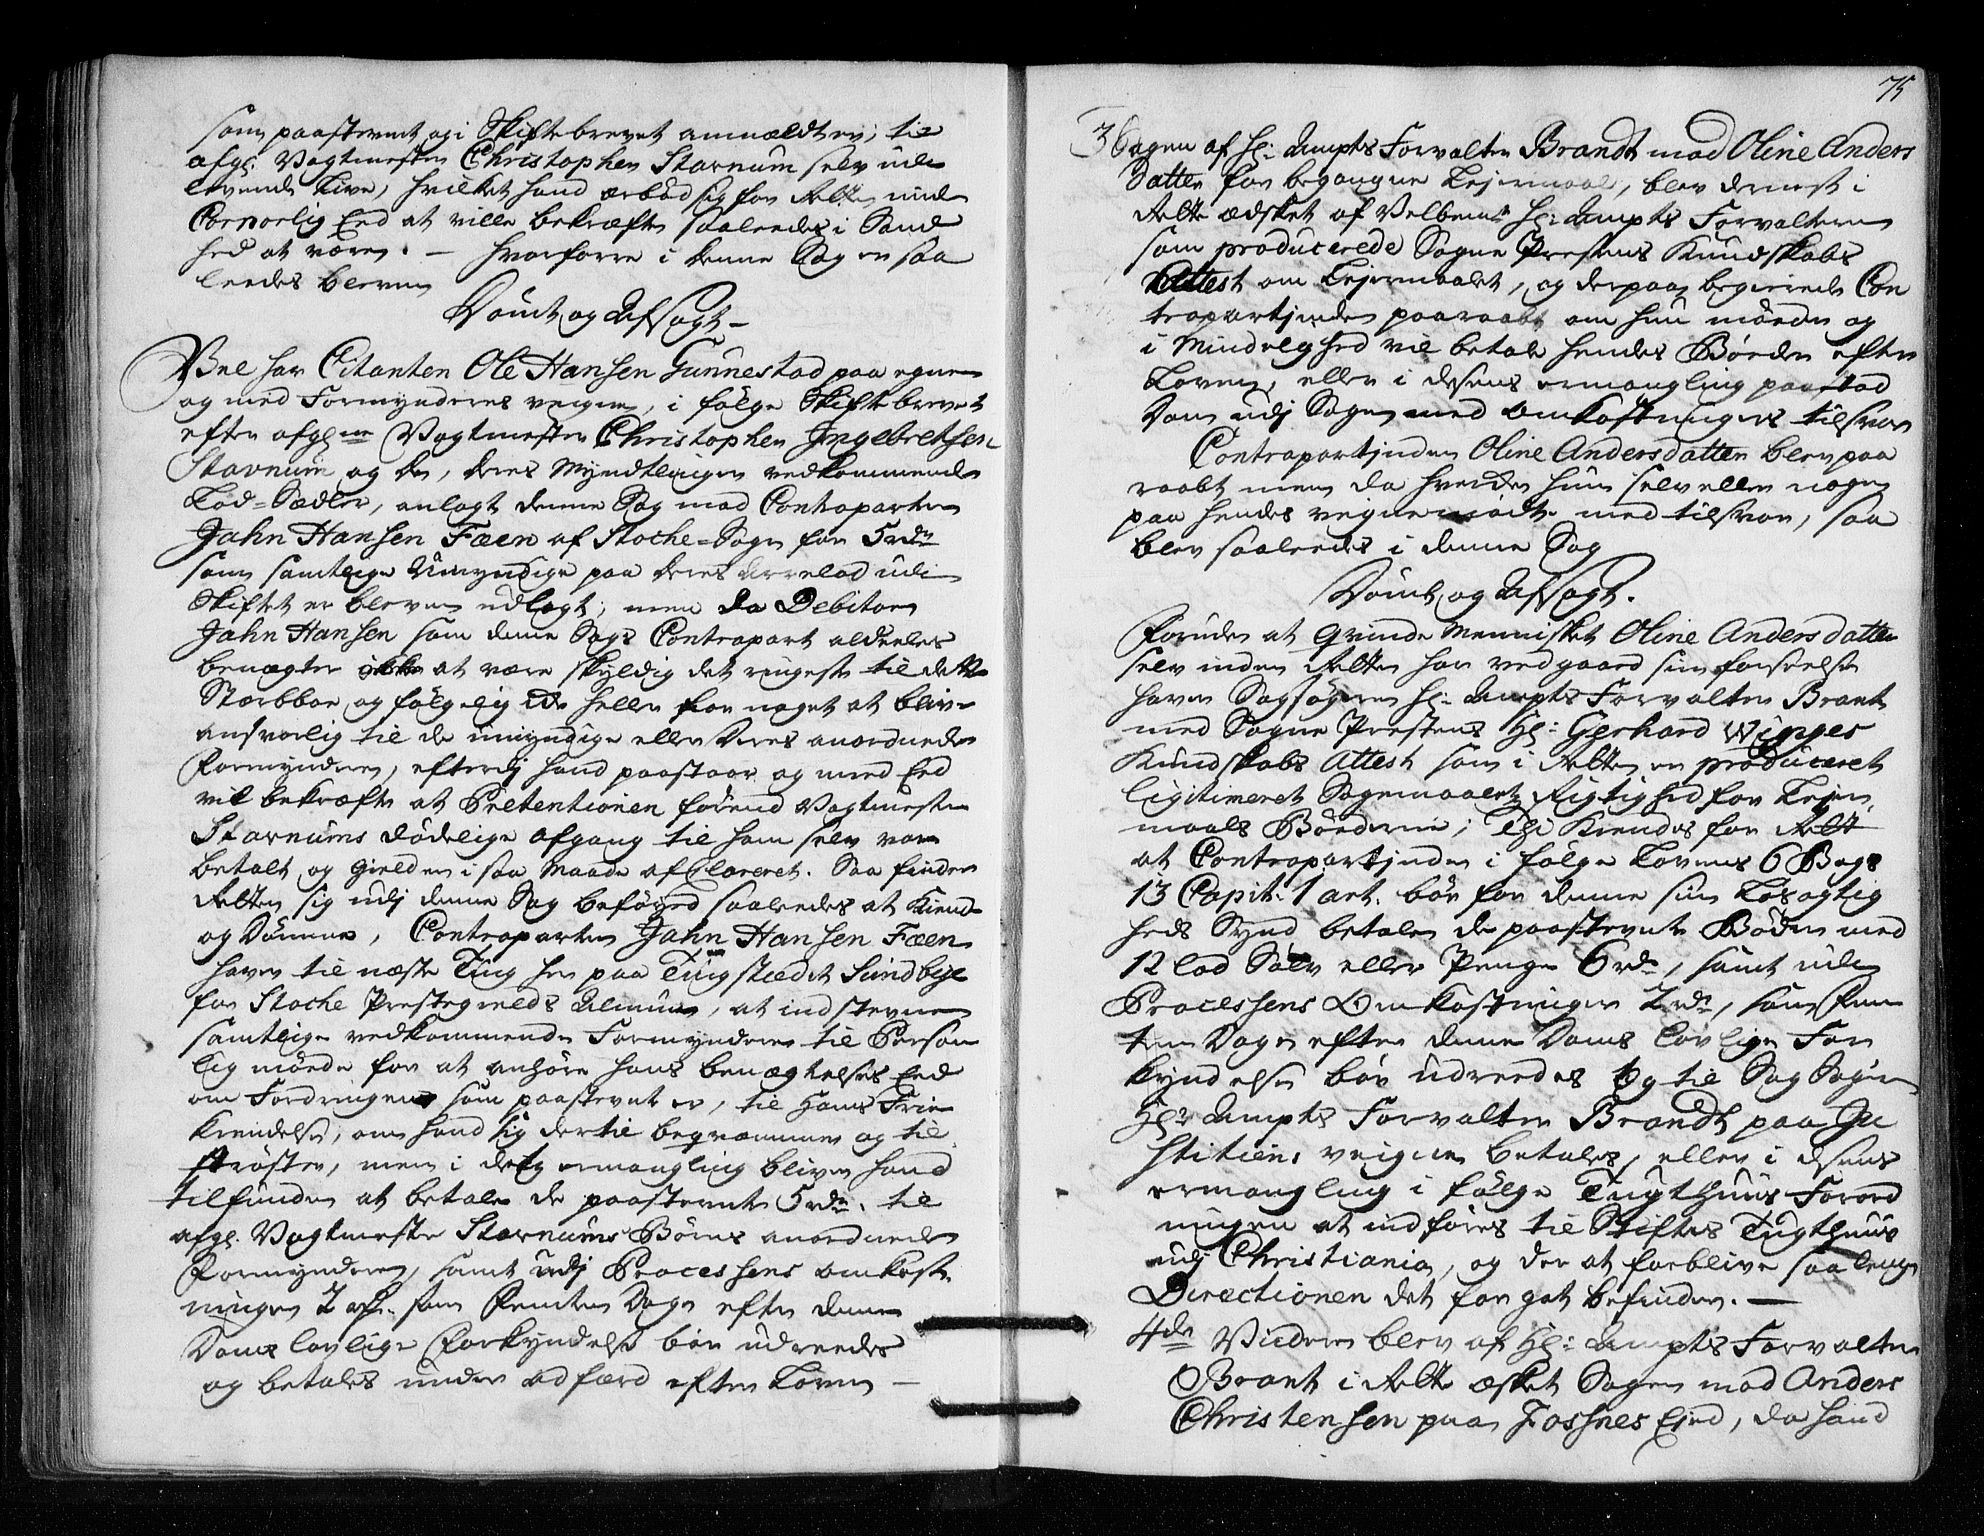 som paastevnt og i Skiftebrevet anmældt er, til
afg: Vagtmester Christopher Stavnum selv udi
levende Live, hvilket hand ærböd sig for Retten med
Corporlig Eed at ville bekræfte saaleedes i Sand
hed at være. — Hvorforre i denne Sag er saa
leedes bleven
Dömt og Afsagt —
Vel har Citanten Ole Hansen Gunnestad paa egne
og med Formynderes veigne, i fölge Skiftebrevet
efter afg:ne Vagtmester Christopher Ingebretsen
Stavnum og de, deres Myndtlinger vedkommende
Lod-Sædler, anlagt denne Sag mod Contraparten
Jahn Hansen Fæen af Stoche-Sogn for 5 rdr
som samtlige Umyndige paa deres Arvelod udi
Skiftet er bleven udlagt; men da Debitor
Jahn Hansen som denne Sags Contrapart aldeeles
benægter at være skyldig det ringeste til dette
Stærbboe og fölgelig ei heller for noget at blive
ansvarlig til de umyndige eller deres anordnede
Formyndere, efterdj hand paastaar og med Eed
vil bekræfte at Pretentionen förend Vagtmester
Stavnums dödelige afgang til ham selv var
betalt og Gielden i saa Maade afClareret. Saa finder
Retten sig udj denne Sag beföyed saaleedes at Kiende
og Dömme, Contraparten Jahn Hansen Fæen
haver til næste Ting her paa Tingstædet Sundbye
for Stoche Prestegields Almue, at indstevne
samtlige vedkommende Formyndere til Person
lig möde for at anhöre hans benægtelses Eed
om Fordringen som paastevnt er, til Hans Frie
Kiendelse, om hand sig dertil beqvæmmer og til
ströster, men i dets ermangling bliver hand
tilfunden at betale de paastevnte 5 rdr. til
afg: Vagtmester Stavnums Börns anordnede
Formyndere, samt udj Processens omkost
ninger 2 rdr. som Femten Dage efter denne
Doms lovlige Forkyndelse bör udreedes
og betales under adfærd efter Loven —
75
3 Sagen af Hr: Ampts Forvalter Brandt mod Oline Anders
datter for begangne Leyermaal, blev dernest i
Rette ædsket af Velbemte Hr: Ampts Forvalteren
som producerede Sogne Prestens Kundskabs
Attest om Leyermaalet, og derpaa begierede Con
trapartjnden paaraabt om hun möder og
i Mindelighed vil betale hendes Böeder efter
Loven, eller i desens ermangling paastod
Dom udj Sagen med omkostningers tilsvar
Contrapartjnden Oline Andersdatter blev paa
raabt men da hverken hun selv eller nogen
paa hendes veigne mödte med tilsvar, saa
blev saaleedes i denne Sag
Dömt og Afsagt.
Foruden at Qvinde Mennisket Oline Andersdatter
selv inden Retten har vedgaaed sin forseelse
haver Sagsögeren Hr: Ampts Forvalter Brant
med Sogne Prestens Hr: Gerhard Winges
Kundskabs Attest som i Retten er produceret
ligitimeret Sogemaalets Rigtighed for Leyer
maals Böederne; Thi Kiendes for Rett
at Contrapartjnden i fölge Lovens 6 Bogs
13 Capit: 1 art. bör for denne sin Lösagtig
heds Synd betale de paastevnte Böder med
12 lod Sölv eller Penge 6 rdr, samt udi
Processens Omkostninger 2 rdr, som Fem
ten Dage efter denne Doms lovlige For
kyndelse bör udreedes og til Sag Sögeren
Hr: Ampts Forvalter Brandt paa Ju
stitiens veigne betales, eller i desens
ermangling i fölge Tugthuus Forord
ningen at indföres til Stiftes Tugthuus
udj Christiania, og der at forblive saa lenge
Directionen det for got befinder. —
4de Videre blev af Hr: Ampts Forvalter
Brant i Rette æsket Sagen mod Anders
Christensen paa Fossnes Eied, da hand